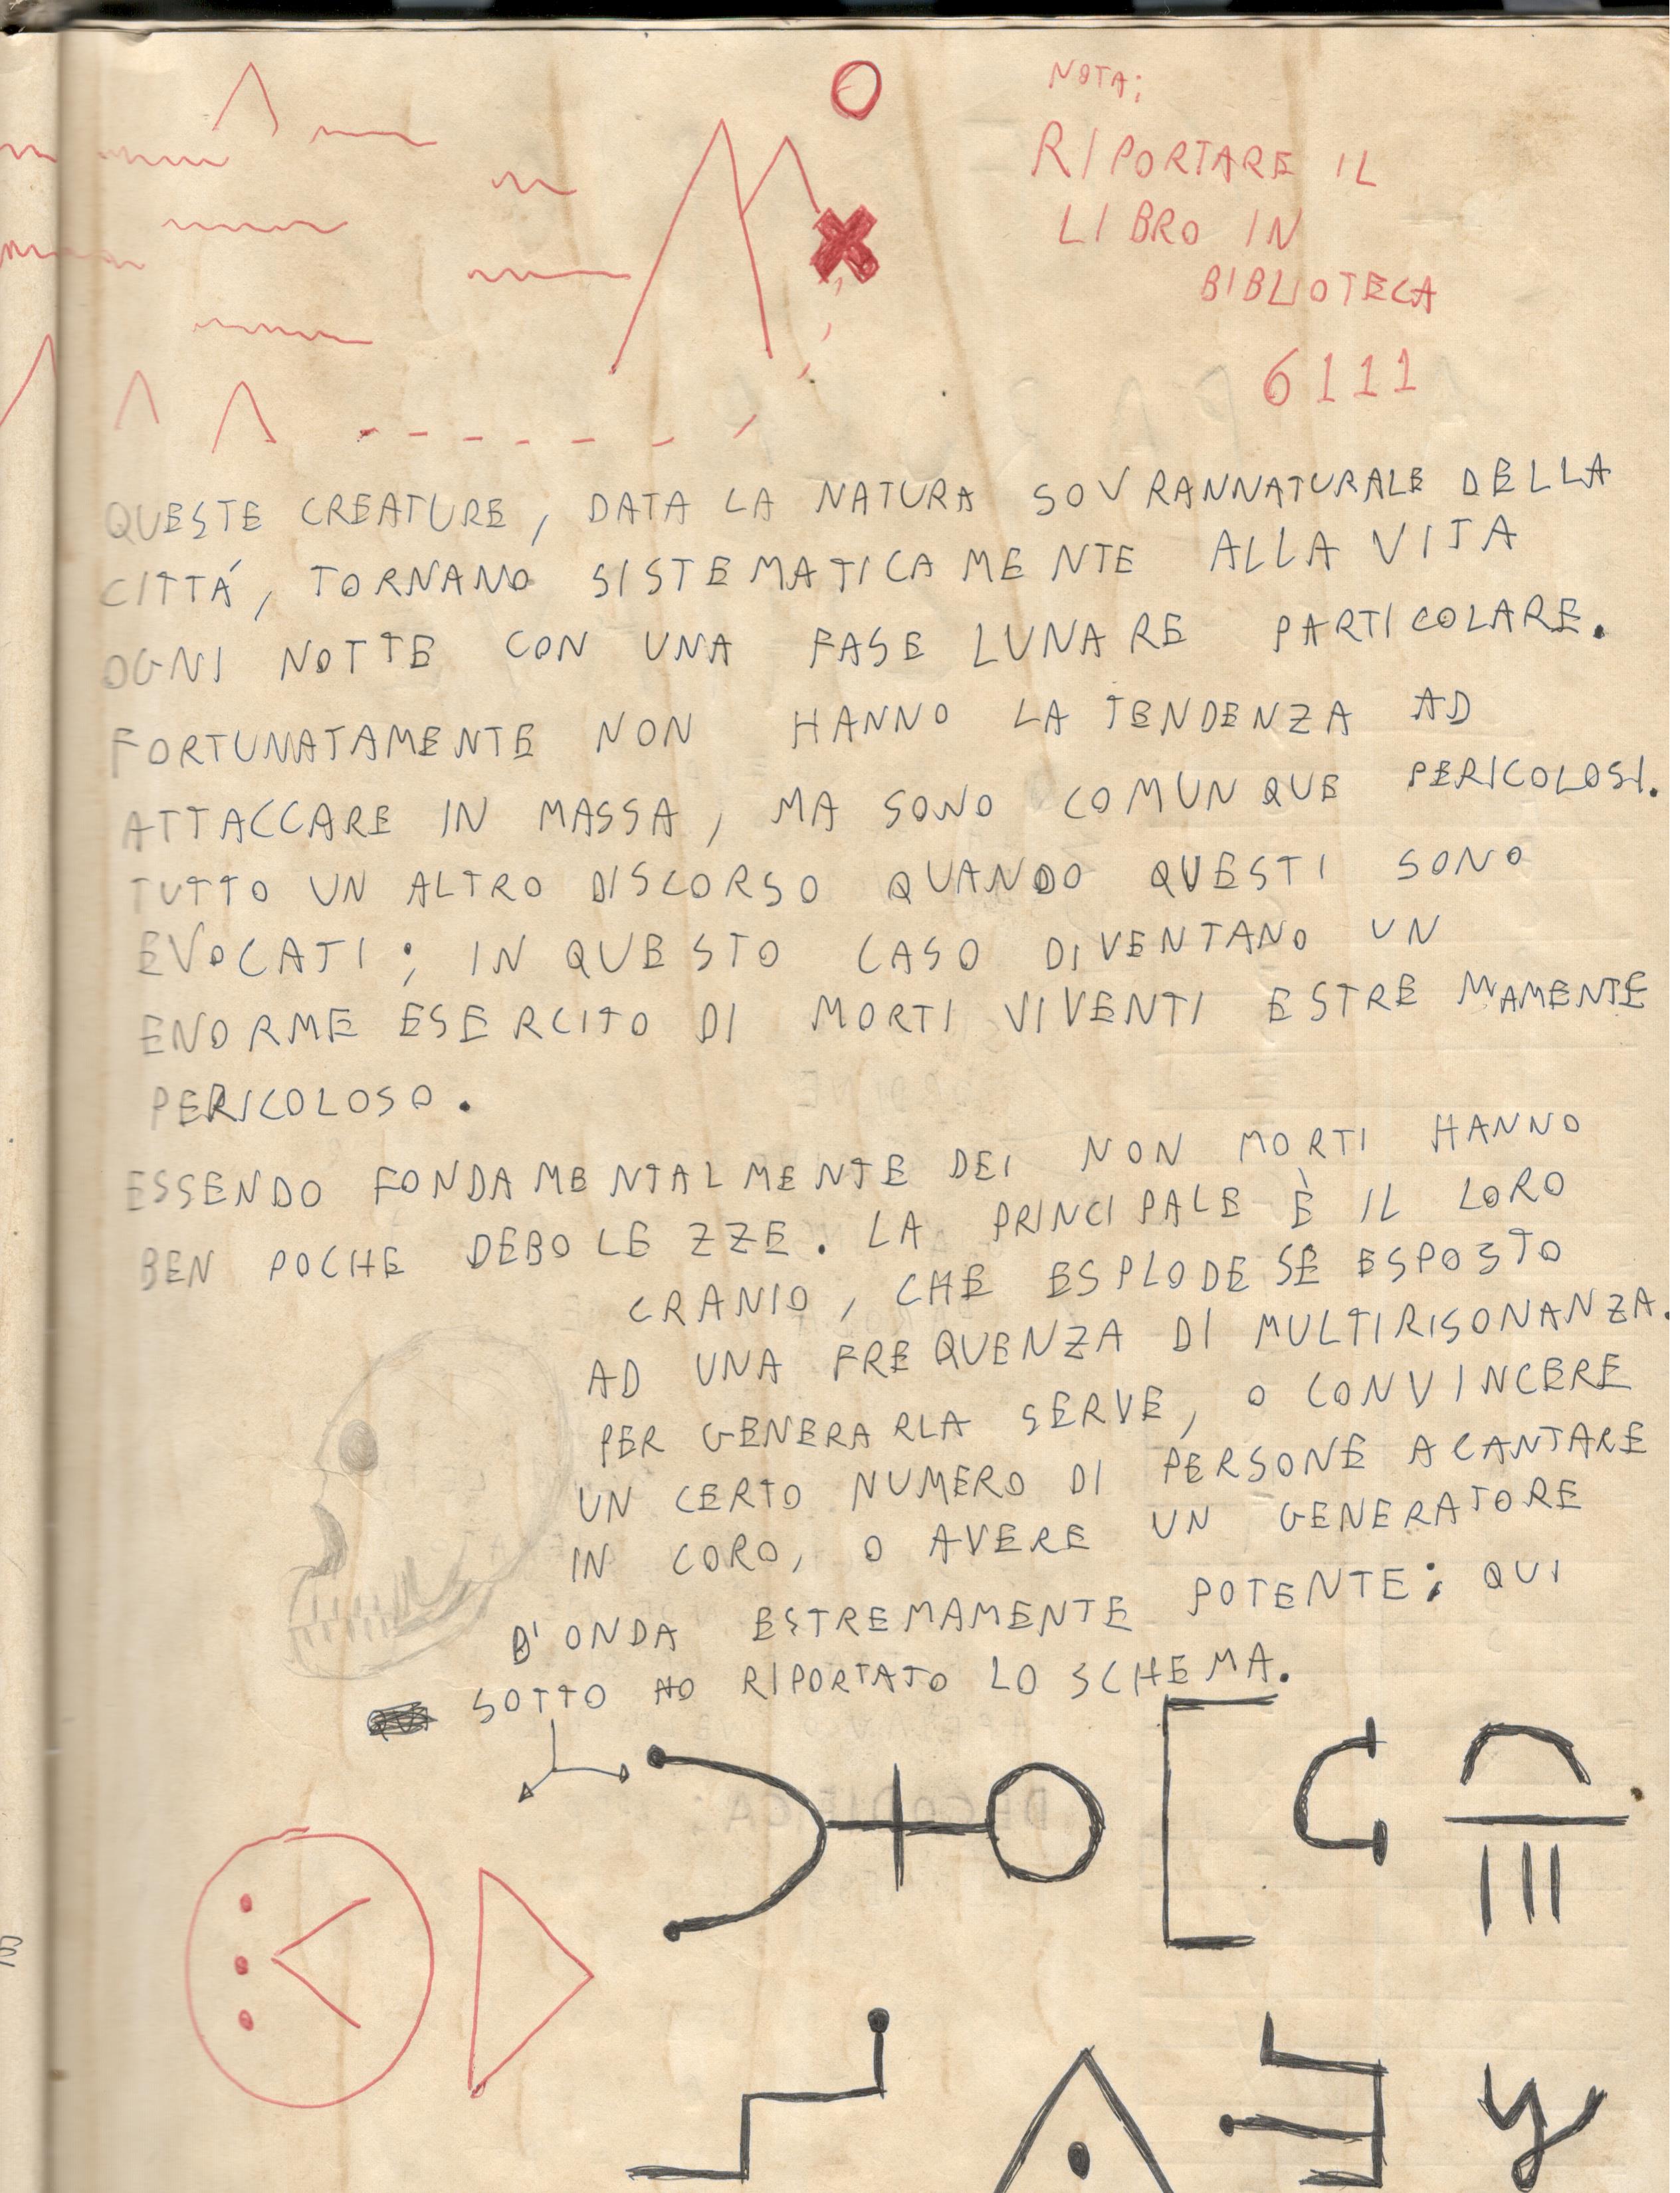 NOTA;
RIPORTARE IL
LIBRO IN
BIBLIOTECA
6111
QUESTE CREATURE, DATA LA NATURA SOVRANNATURALE DELLA
CITTÁ, TORNANO SISTEMATICAMENTE ALLA VITA
OGNI NOTTE CON UNA FASE LUNARE PARTICOLARE.
FORTUNATAMENTE NON HANNO LA TENDENZA AD
ATTACCARE IN MASSA, MA SONO COMUNQUE PERICOLOSI.
TUTTO UN ALTRO DISCORSO QUANDO QUESTI SONO
EVOCATI; IN QUESTO CASO DIVENTANO UN
ENORME ESERCITO DI MORTI VIVENTI ESTREMAMENTE
PERICOLOSO.
ESSENDO FONDAMENTALMENTE DEI NON MORTI HANNO
BEN POCHE DEBOLEZZE. LA PRINCIPALE È IL LORO
CRANIO, CHE ESPLODE SE ESPOSTO
AD UNA FREQUENZA DI MULTIRISONANZA.
PER GENERARLA SERVE, O CONVINCERE
UN CERTO NUMERO DI PERSONE A CANTARE
IN CORO, O AVERE UN GENERATORE
D'ONDA ESTREMAMENTE POTENTE; QUI
SOTTO HO RIPORTATO LO SCHEMA.